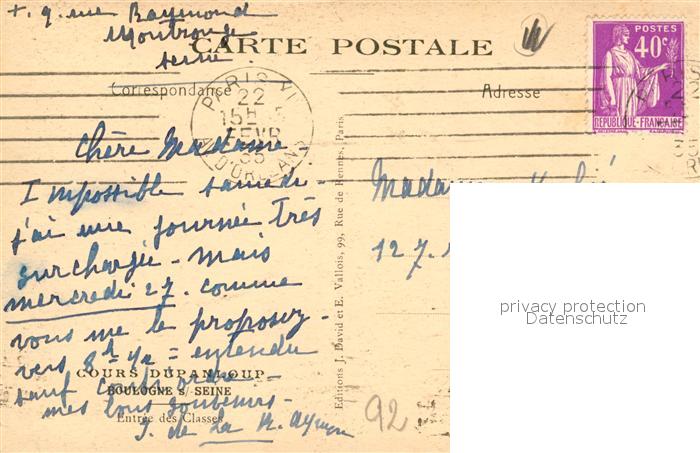 + 9. rue Raymond
Montrouge
Seine
CARTE POSTALE
Correspondance
Adresse
PARIS XIV
22
15H
FEVR
35
AV. D'ORLEANS
POSTES
40c
REPUBLIQUE-FRANÇAISE
Chère Madame-
Impossible samedi-
j'ai une journée très
surchargée - mais
mercredi 27. comme
vous me le proposez-
vers 8h 1/2 = entendu
sauf contre ordre-
mes bons souvenirs-
J. de la R. Aymon
Madame
12 7.
Editions J. David et E. Vallois, 99, Rue de Rennes, Paris
COURS DUPANLOUP
BOULOGNE S/ SEINE
Entrée des Classes
92
privacy protection
Datenschutz